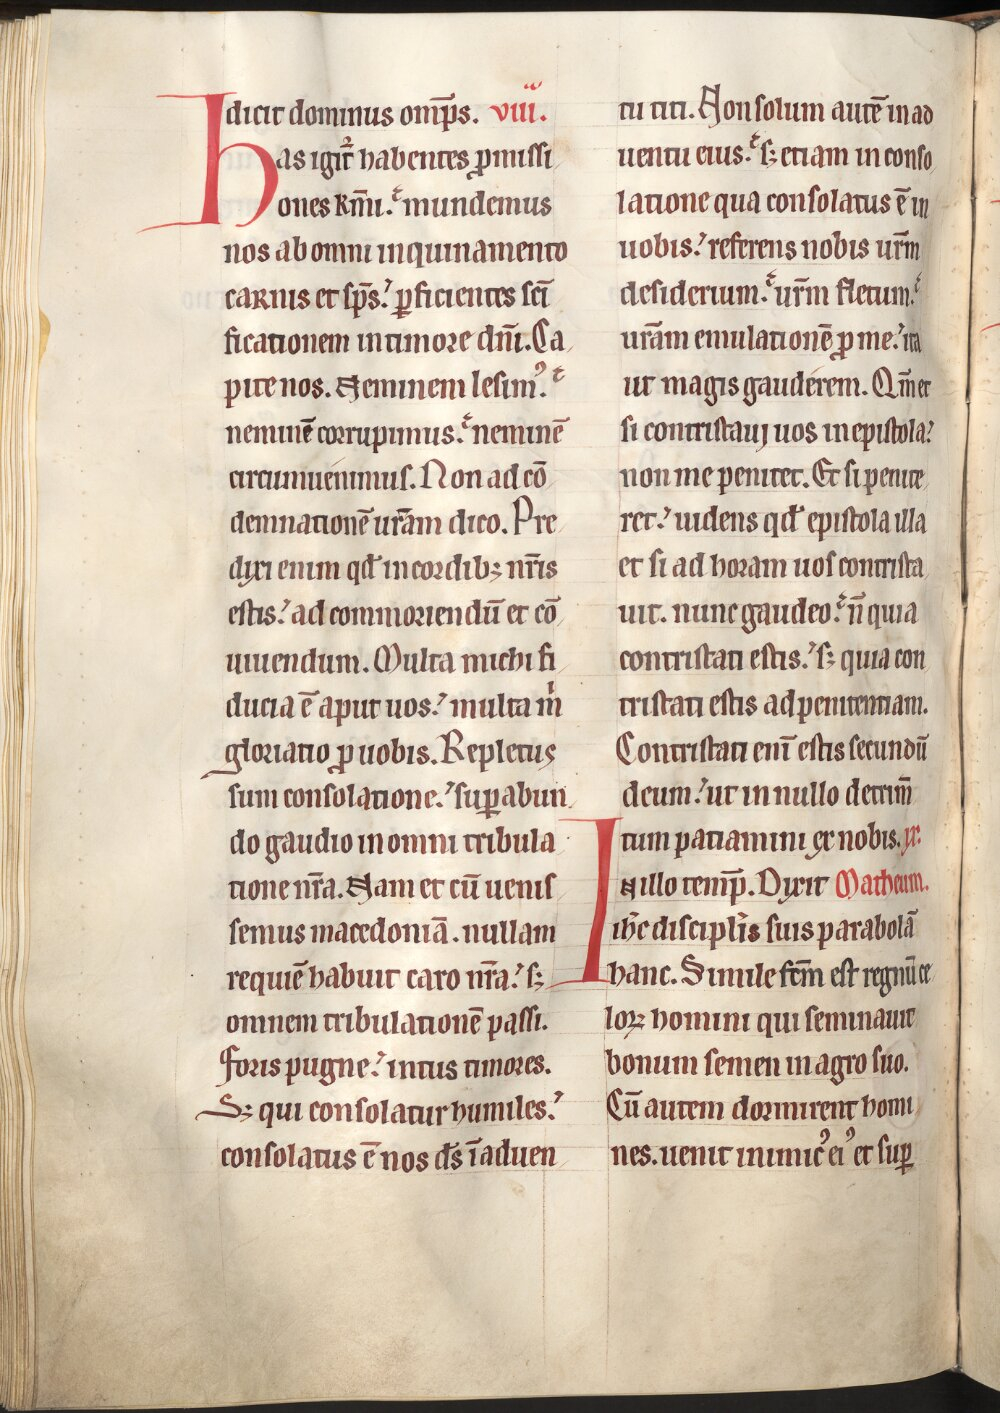 dicit dominus omp̄s. viii.
has igit̄ habentes ꝓmissi
ones km̄i. mundemus
nos ab omni inquinamento
carnis et sp̄s. ꝑficientes scī
ficationem in timore dn̄i. Ca
pite nos. Neminem lesimꝰ.
neminē corrupimus. neminē
circumuenimus. Non ad cō
demnationē ur̄am dico. Pre
dixi enim qđ in cordibꝫ nr̄is
estis. ad commoriendū et cō
uiuendum. Multa michi fi
ducia ē aput uos. multa m̄
gloriatio ꝓ uobis. Repletus
sum consolatione. suꝑabun
do gaudio in omni tribula
tione nr̄a. Nam et cū uenis
semus macedoniā. nullam
requiē habuit caro nr̄a. sꝫ
omnem tribulationē passi.
foris pugne. intus timores.
Sꝫ qui consolatur humiles.
consolatus ē nos ds̄ ī aduen
tu titi. Non solum autē in ad
uentu eius. sꝫ etiam in conso
latione qua consolatus ē in
uobis. referens nobis ur̄m
desiderium. ur̄m fletum.
ur̄am emulationē ꝓ me. ita
ut magis gauderem. Qm̄ et
si contristauj uos in epistola.
non me penitet. Et si penite
ret. uidens qđ epistola illa
et si ad horam uos contrista
uit. nunc gaudeo. n̄ quia
contristati estis. sꝫ quia con
tristati estis ad penitentiam.
Contristati enī estis secundū
deum. ut in nullo detrim̄
tum patiamini ex nobis. ix.
In illo temp̄. Dixit Matheum.
ih̄c discipl̄is suis parabolā
hanc. Simile fc̄m est regnū ce
loꝝ homini qui seminauit
bonum semen in agro suo.
Cū autem dormirent homi
nes. uenit inimicꝰ eiꝰ et suꝑ